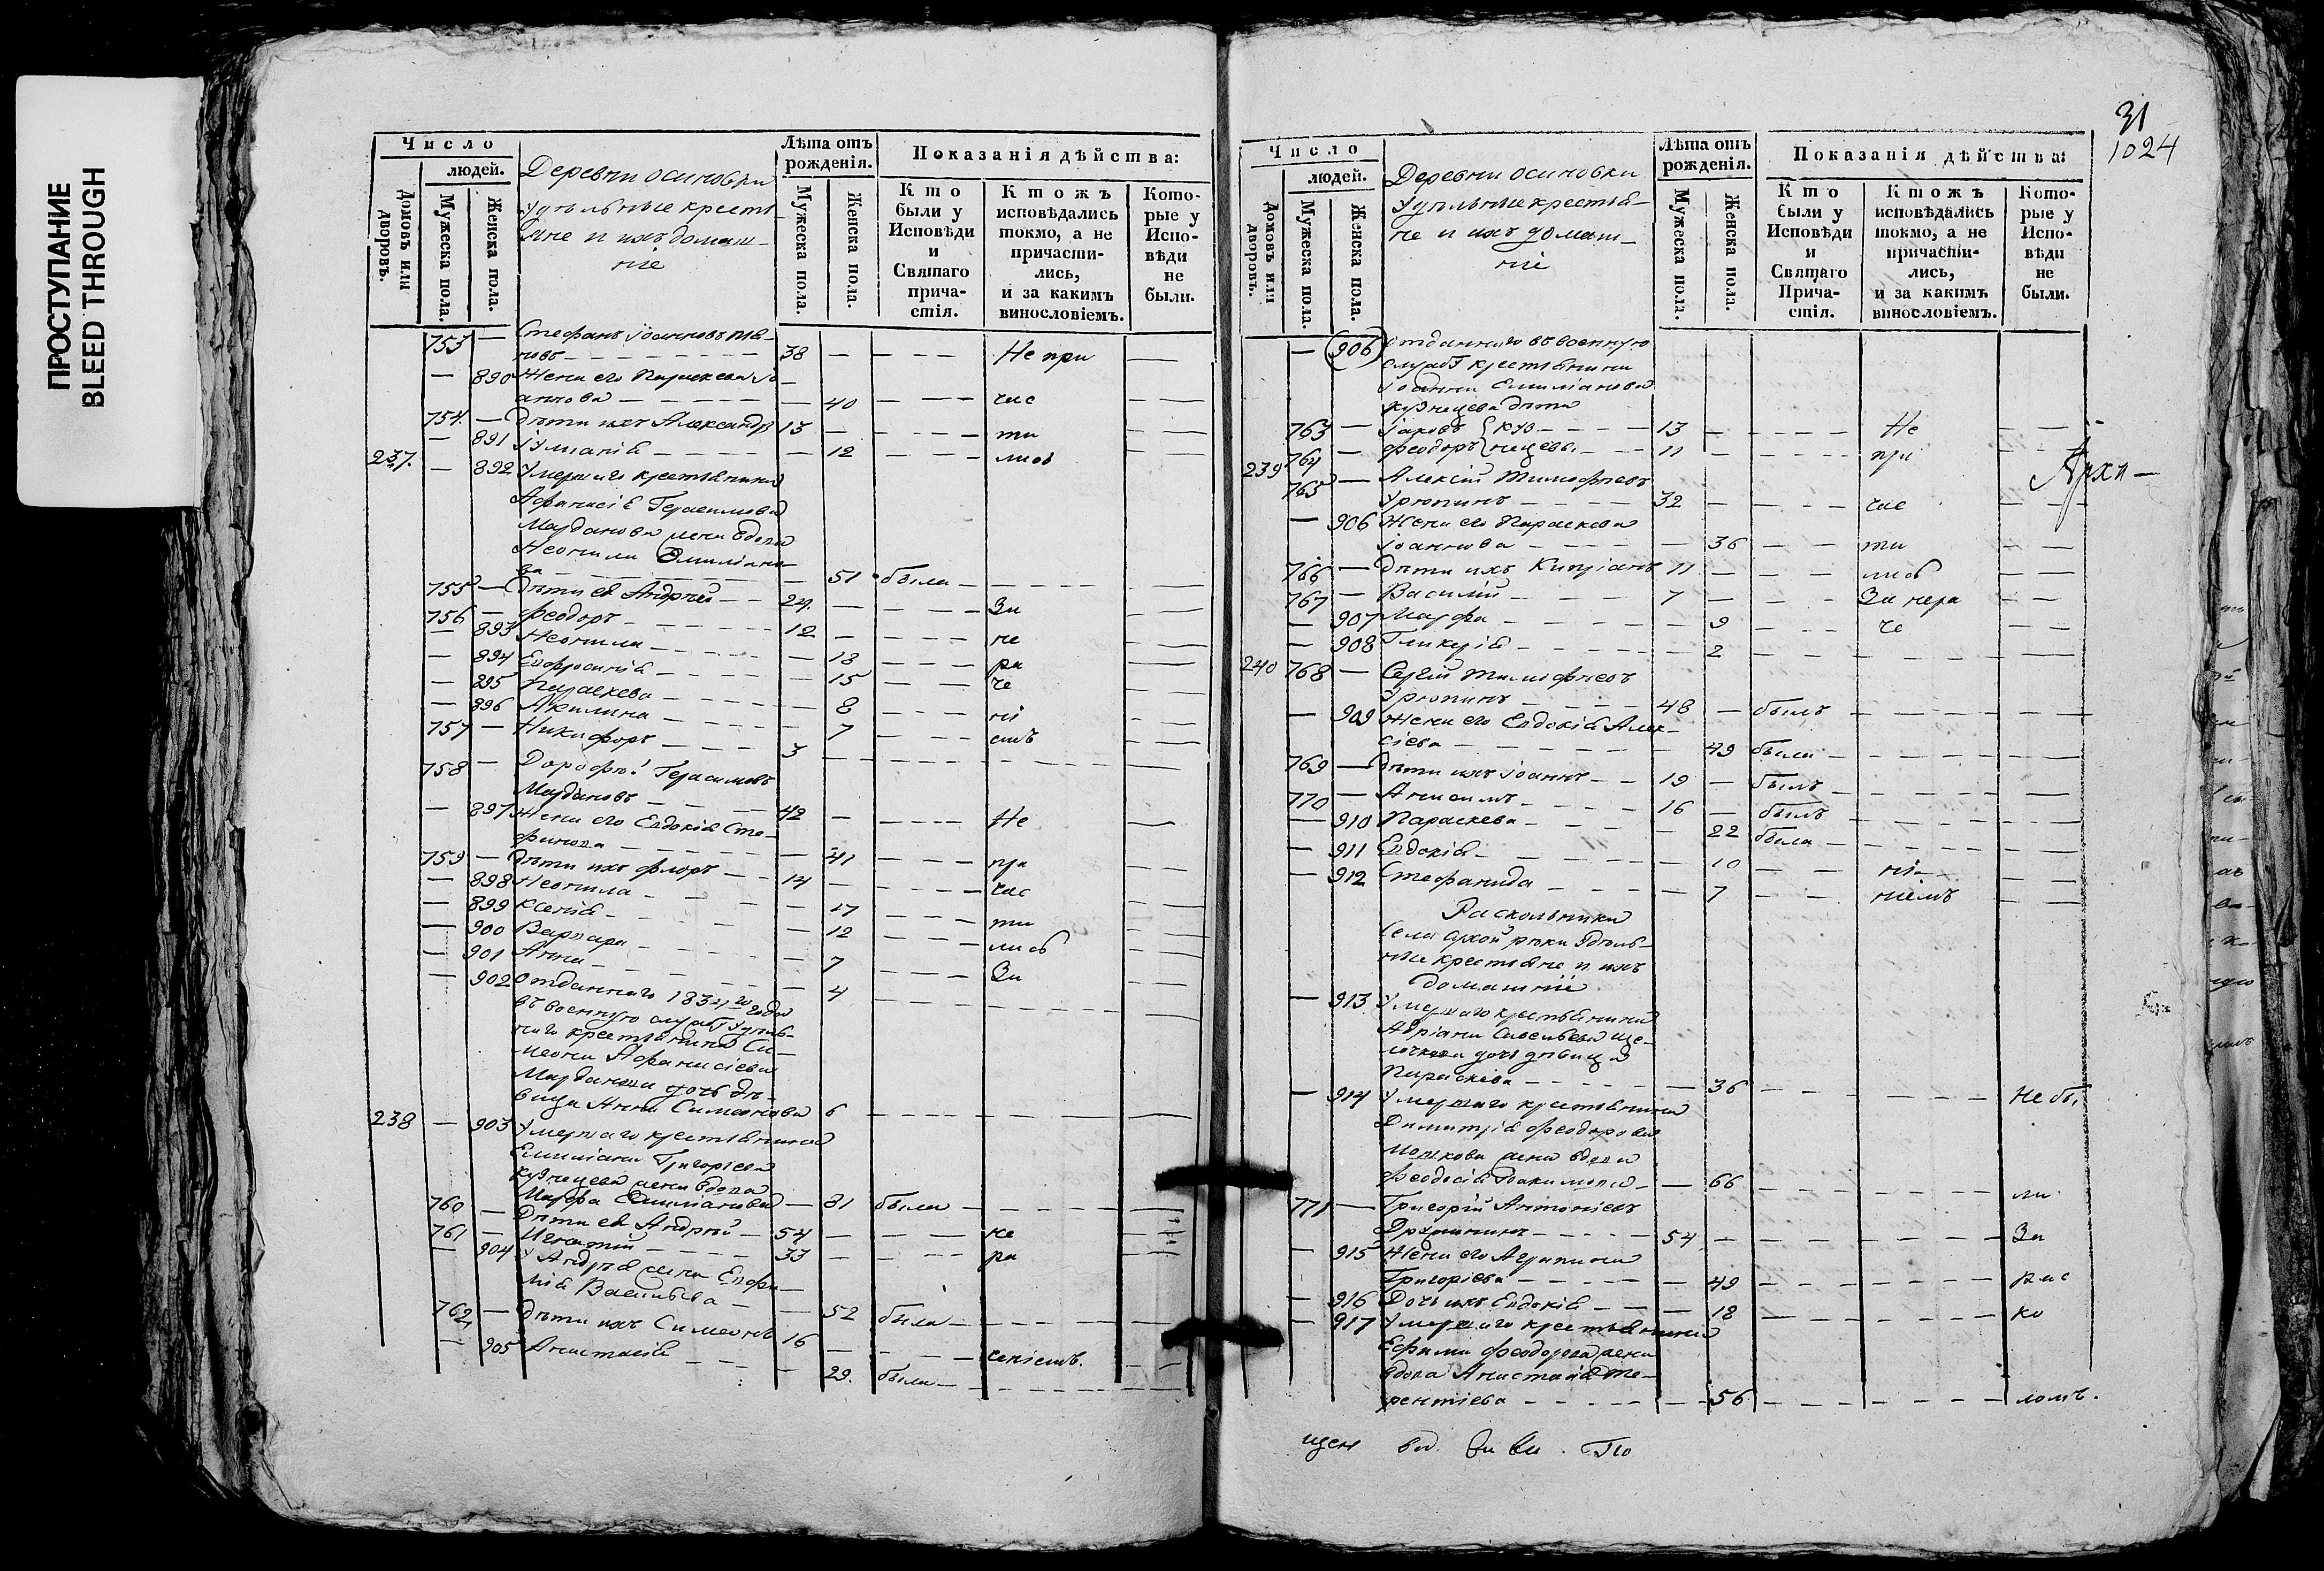 ПРОСТУПАНИЕ
BLEED THROUGH
Число
людей.
Домовъ или дворовъ.
Мужеска пола.
Женска пола.
Деревни осиновки
удѣльные кресть-
яне и ихъ домаш-
ніе
Лѣта отъ рожденія.
Мужеска пола.
Женска пола.
Показанія дѣйства:
Кто были у Исповѣди и Святаго причастія.
Ктожъ исповѣдались токмо, а не причастились, и за какимъ винословіемъ.
Которые у Исповѣди не были.
753 — Стефанъ Іоанновъ
38 — Не при
— 890 Жена его Параскева Іо-
аннова — 40 — час
754. — Дѣти ихъ Александръ 13 — ти
— 891 Іуліанія — 12 — лись
237. — 892 Умершаго крестьянина
Афанасія Герасимова
Марданова жена вдова
Неонила Емиліано-
ва — 51 была —
755 — Дѣти ея Андрей — 24. — За
756 — Феодоръ — 12 — не
— 893 Неонила — 18 — ра
— 894 Евфросинія — 15 — че
— 895 Параскева — 8 — ні
— 896 Акилина — 7 — емъ
757 — Никифоръ — 3 —
758 — Дорофей Герасимовъ
Мардановъ — 42 — Не
— 897 Жена его Евдокія Сте-
фанова — 41 — при
759 — Дѣти ихъ Флоръ — 14 — час
— 898 Неонила — 17 — ти
— 899 Ксенія — 12 — лись
— 900 Варвара — 7 — За
— 901 Анна — 4 —
— 902 Отданнаго 1834го года
въ военную службу удѣль-
наго крестьянина Си-
меона Афанасіева
Марданова дочь дѣ-
вица Анна Симеонова 6 —
238 — 903 Умершаго крестьянина
Емиліана Григоріева
Кузнецева жена вдова
Марфа Емиліанова — 81 была —
760 — Дѣти ея Андрей — 54 — не
761 — Игнатій — 33 — ра
— 904 У Андрея жена Евфи-
мія Васильева — 52 была —
762 — Дѣти ихъ Симеонъ 16 — ченіемъ.
— 905 Анастасія — 29. была —
31
1024
Число
людей.
Домовъ или дворовъ.
Мужеска пола.
Женска пола.
Деревни осиновки
удѣльные крестья-
не и ихъ домаш-
ніе
Лѣта отъ рожденія.
Мужеска пола.
Женска пола.
Показанія дѣйства:
Кто были у Исповѣди и Святаго Причастія.
Ктожъ исповѣдались токмо, а не причастились, и за какимъ винословіемъ.
Которые у Исповѣди не были.
— 906 отданнаго въ военную
службу крестьянина
Іоанна Емиліанова
Кузнецева дѣти
763 — Іаковъ } куз- — 13 — Не
764 — Феодоръ } нецевы — 11 — при
239 765 — Алексій Тимофеевъ
Урюпинъ — 32 — час
— 906 Жена его Параскева
Іоаннова — 36 — ти
766 — Дѣти ихъ Кипріанъ 11 — лись
767 — Василій — 7 — За нера
— 907 Марфа — 9 — че
— 908 Гликерія — 2 —
240 768 — Сергій Тимофеевъ
Урюпинъ — 48 — былъ —
— 909 Жена его Евдокія Алек-
сіева — 49 была —
769 — Дѣти ихъ Іоаннъ — 19 — былъ —
770 — Анисимъ — 16 — былъ —
— 910 Параскева — 22 была —
— 911 Евдокія — 10 — ні
— 912 Стефанида — 7 — ніемъ
Архи—
Раскольники
села сухой рѣки удѣль-
ные крестьяне и ихъ
домашніе
— 913 Умершаго крестьянина
Адріана Савельева
дочь дѣвица
Параскева — 36 — Не бы
— 914 Умершаго крестьянина
Димитрія Феодорова
жена вдова
Феодосія — 66 — ли
771 — Григорій Антоніевъ
54 — За
— 915 Жена его Агрипина
Григоріева — 49 — рас
— 916 Дочь ихъ Евдокія — 18 — ко
— 917 Умершаго крестьянина
Ефима Феодорова жена
вдова Анастасія Те-
рентіева — 56 — ломъ.